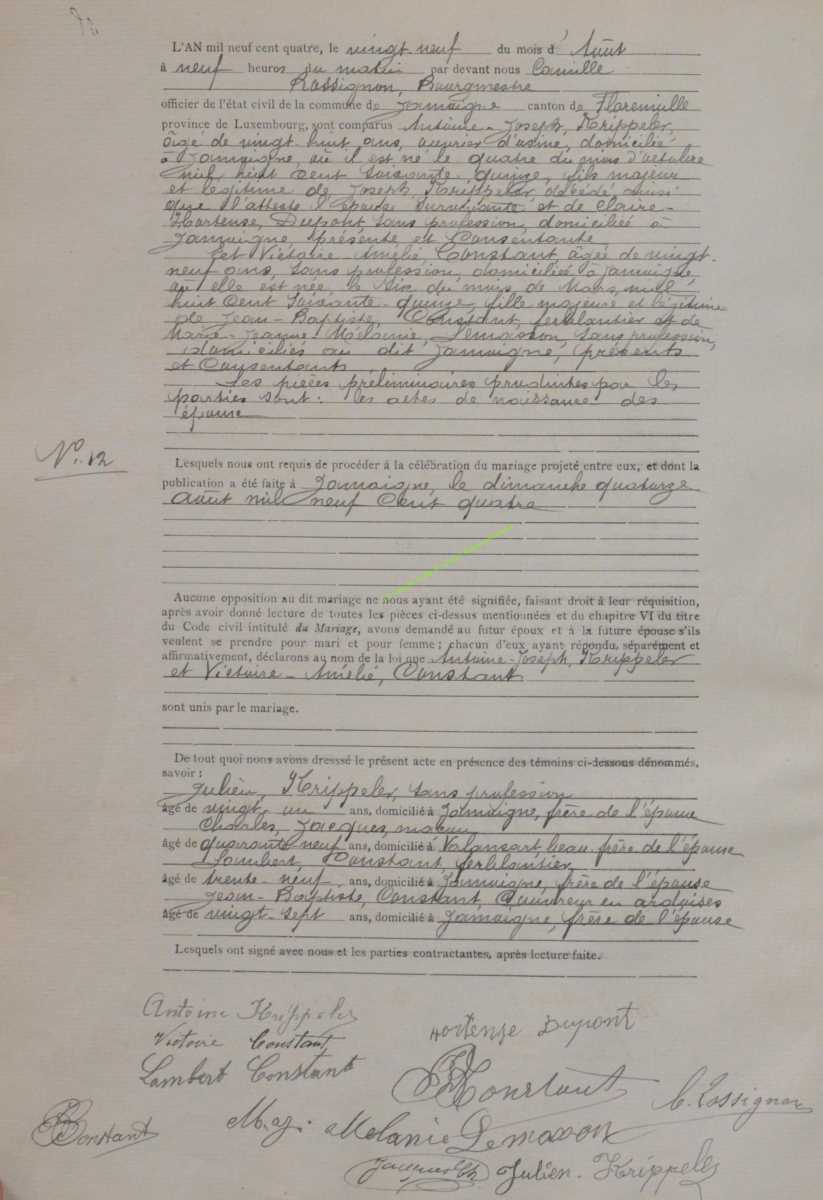 L'AN mil neuf cent quatre, le vingt-neuf du mois d' Août
à neuf heures du matin par devant nous Camille
Rossignon, Bourgmestre
officier de l'état civil de la commune de Jamoigne canton de Florenville
province de Luxembourg, sont comparus Antoine-Joseph, Krippeler,
âgé de vingt huit ans, ouvrier d'usine, domicilié
à Jamoigne, où il est né le quatre du mois d'octobre
mil huit cent soixante quinze, fils majeur
et légitime de Joseph Krippeler, décédé, ainsi
que l'atteste l'épouse survivante et de Claire-
Hortense, Dupont, sans profession, domiciliée à
Jamoigne, présente et Consentante
Et Victoire-Amélie Constant, âgée de vingt-
neuf ans, sans profession, domiciliée à Jamoigne
où elle est née, le six du mois de Mars, mil
huit cent soixante-quinze, fille majeure et légitime
de Jean-Baptiste, Constant, ferblantier et de
Marie-Jeanne-Mélanie, Lemasson, sans profession,
domiciliés au dit Jamoigne, présents
et Consentants
Les pièces préliminaires produites par les
parties sont : les actes de naissance des
époux
N° 12
Lesquels nous ont requis de procéder à la célébration du mariage projeté entre eux, et dont la
publication a été faite à Jamoigne, le dimanche quatorze
Août mil neuf cent quatre
Aucune opposition au dit mariage ne nous ayant été signifiée, faisant droit à leur réquisition,
après avoir donné lecture de toutes les pièces ci-dessus mentionnées et du chapitre VI du titre
du Code civil intitulé du Mariage, avons demandé au futur époux et à la future épouse s'ils
veulent se prendre pour mari et pour femme ; chacun d'eux ayant répondu, séparément et
affirmativement, déclarons au nom de la loi que Antoine-Joseph, Krippeler
et Victoire-Amélie, Constant
sont unis par le mariage.
De tout quoi nous avons dresssé le présent acte en présence des témoins ci-dessous dénommés,
savoir :
Julien, Krippeler, sans profession
âgé de vingt un ans, domicilié à Jamoigne, frère de l'époux
Charles, Jacques, maçon
âgé de quarante neuf ans, domicilié à Valansart beau-frère de l'épouse
Lambert, Constant, ferblantier
âgé de trente-neuf ans, domicilié à Jamoigne, frère de l'épouse
Jean-Baptiste, Constant, Couvreur en ardoises
âgé de vingt-sept ans, domicilié à Jamoigne, frère de l'épouse
Lesquels ont signé avec nous et les parties contractantes, après lecture faite.
Antoine Krippeler
Hortense Dupont
Victoire Constant
Lambert Constant
Constant
C. Rossignon
Constant
Melanie Lemasson
Jacques Ch
Julien Krippeler